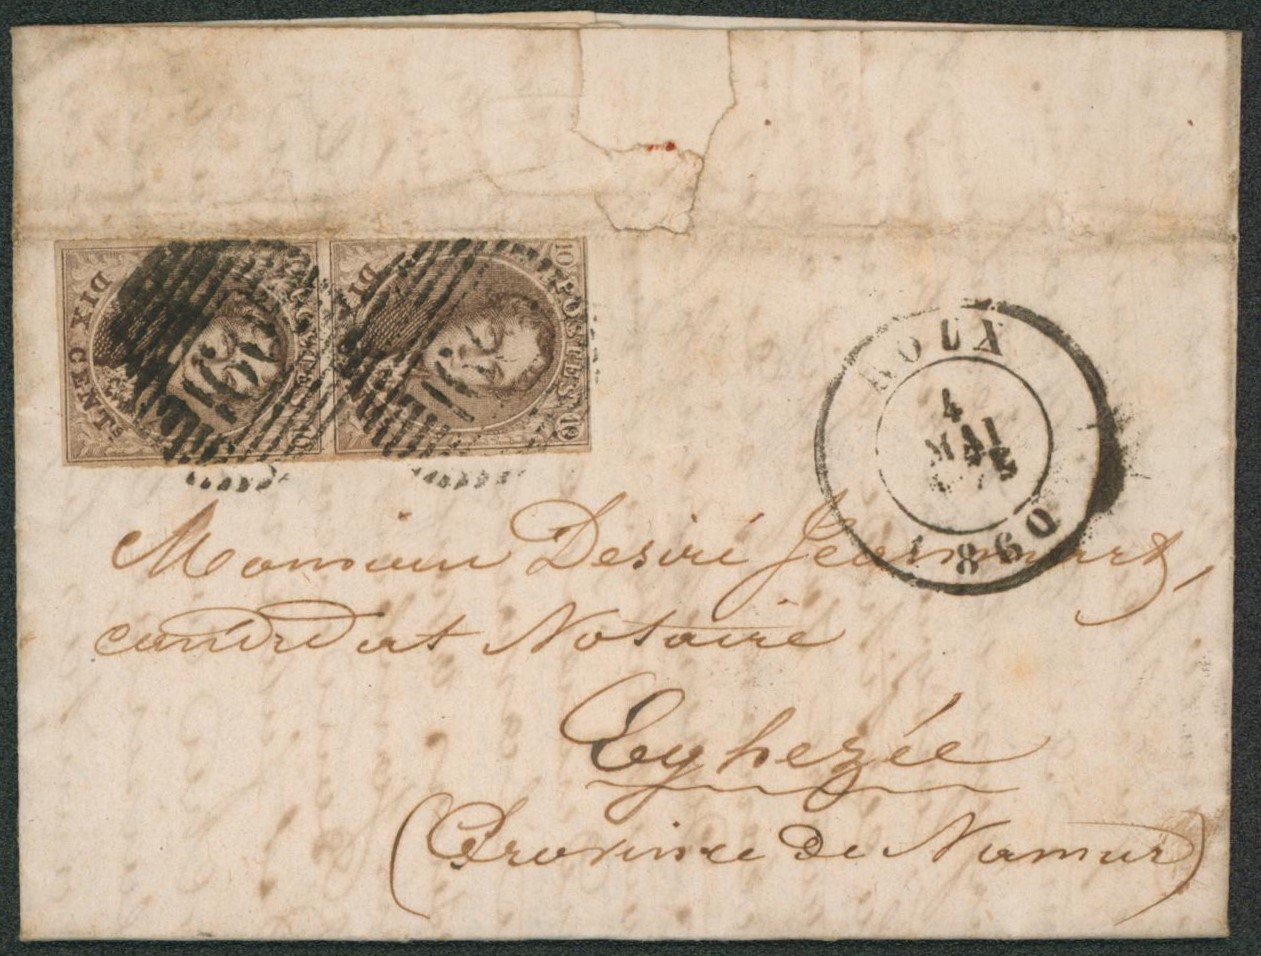 DIX CENTS POSTES 10
163
10 POSTES 10
DIX
ROUX
4
MAI
1860
Monsieur Desiré
candidat Notaire
Eghezée
(Province de Namur)